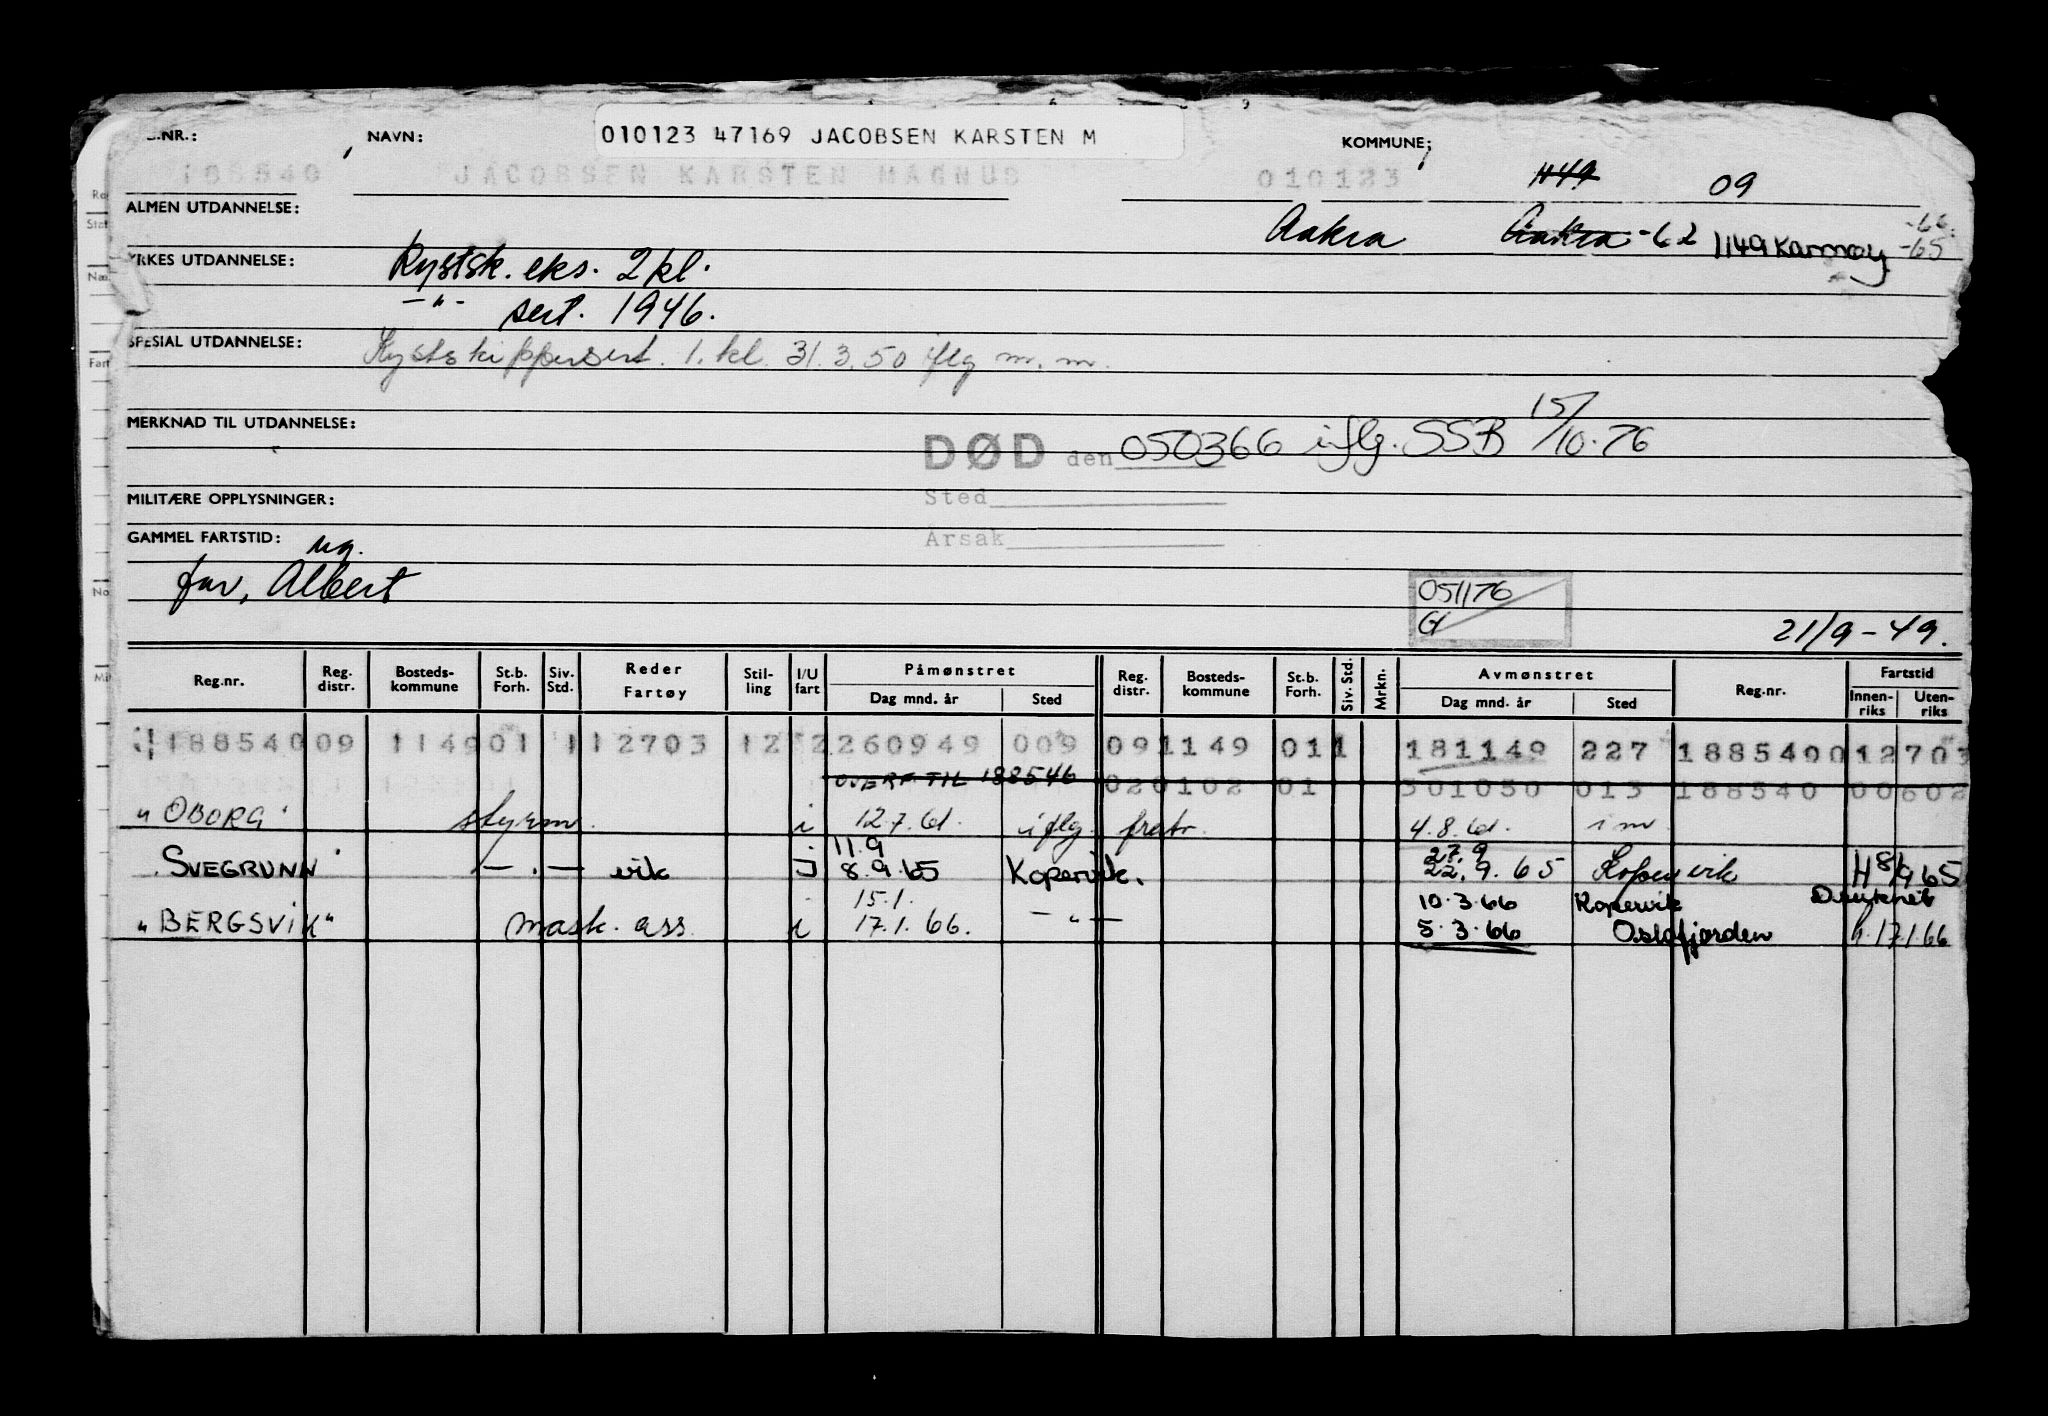 .NR.:
NAVN:
010123 47169 JACOBSEN KARSTEN M
KOMMUNE:
188540 JACOBSEN KARSTEN MAGNUS 010123 1149 09
ALMEN UTDANNELSE:
Aakra Aakra -62 1149 Karmøy -65 -66
YRKES UTDANNELSE: Kystsk. eks. 2 kl.
-"- sert. 1946.
SPESIAL UTDANNELSE: Kystskippersert. 1. kl. 31.3.50 iflg m.m.
MERKNAD TIL UTDANNELSE:
DØD den 050366 iflg. SSB 15/10.76
MILITÆRE OPPLYSNINGER: Sted
GAMMEL FARTSTID: ug. Årsak
far, Albert
051176
21/9-49.
Reg.nr. Reg. distr. Bosteds-kommune St.b. Forh. Siv. Std. Reder Fartøy Stil-ling I/U fart Påmønstret Dag mnd. år Sted Reg. distr. Bosteds-kommune St.b. Forh. Siv. Std. Mrkn. Avmønstret Dag mnd. år Sted Reg.nr. Fartstid Innen-riks Uten-riks
188540 09 1149 01 1 12703 12 2 260949 009 09 1149 01 1 181149 227 188540 012703
OVERF TIL 188546 02 0102 01 301050 013 188540 00602
"OBORG" styrm. i 12.7.61. iflg. fratr. 4.8.61. i m
11.9 27.9
SVEGRUNN -"- vik I 8.9.65 Kopervik. 22.9.65 Kopervik H 8/9 65
15.1. 10.3.66 Kopervik Druknet
"BERGSVIK" mask. ass. i 17.1.66. -"- 5.3.66 Oslofjorden h. 17.1.66